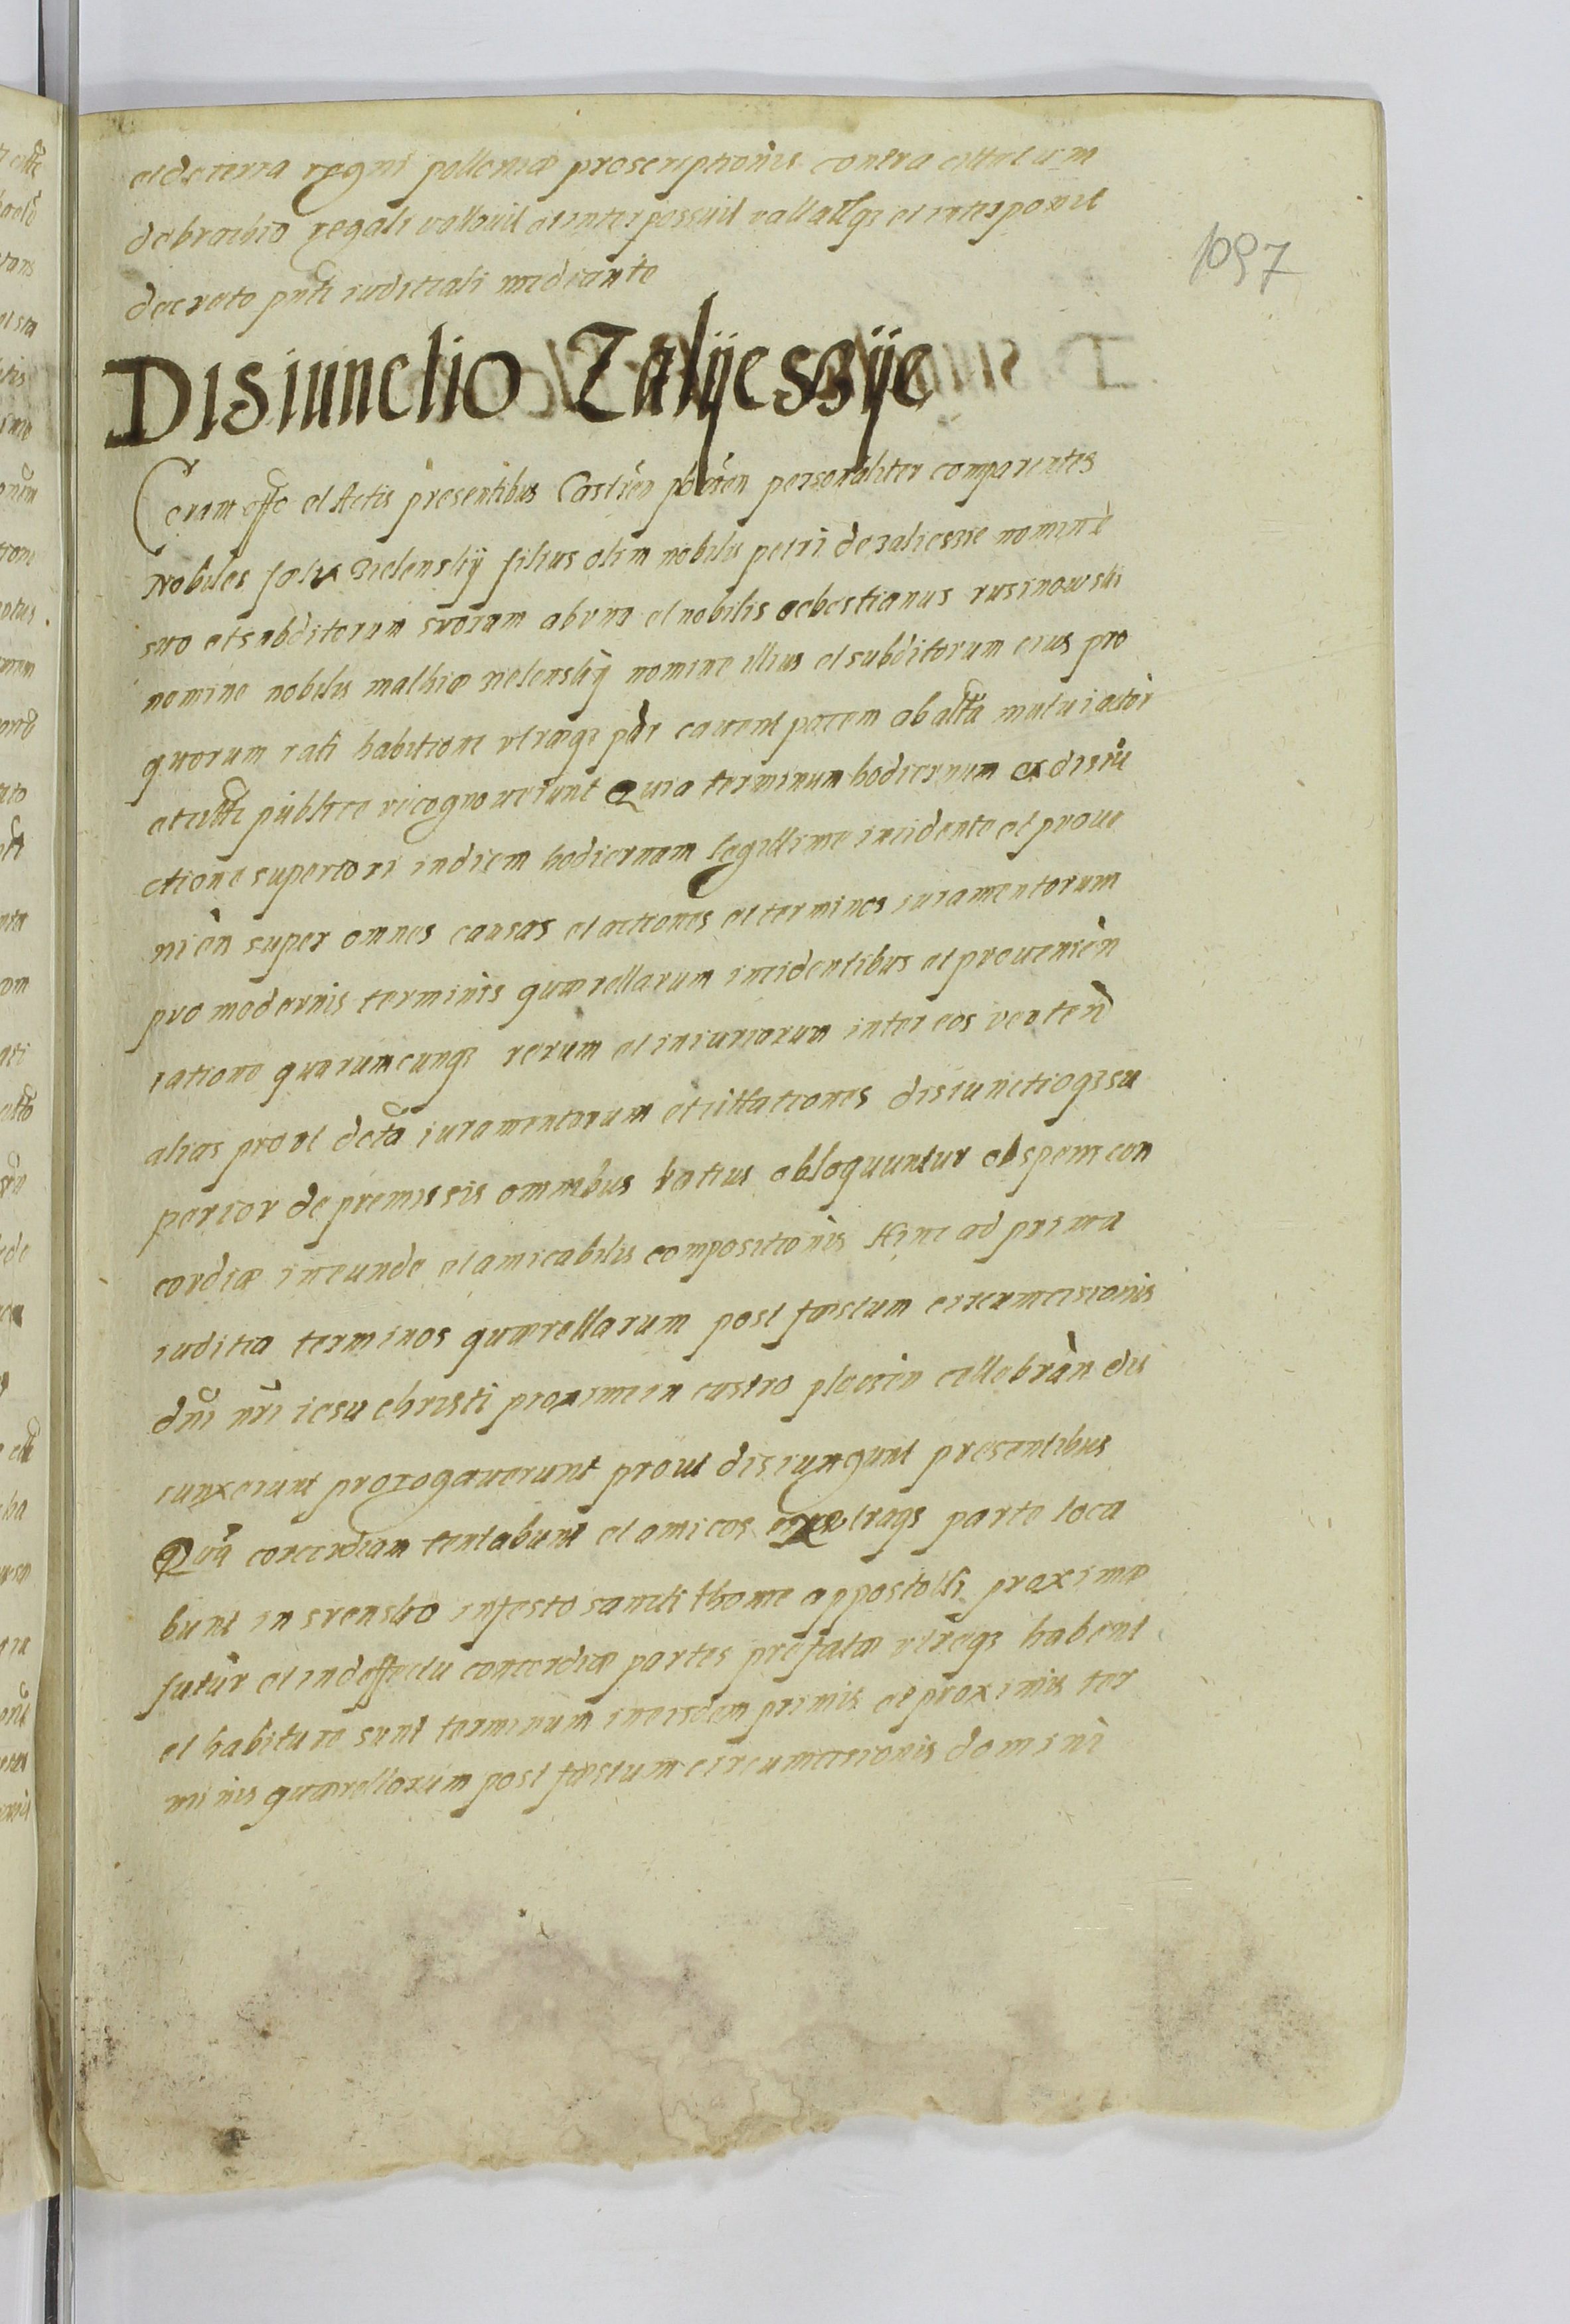 et de terra regni polloniæ proscriptionis contra citatum
de brachio regali vallavit et interposuit vallatqȝ et interponit
decreto pnti iuditiali mediante
1097
Disiunctio Zalijesszije
Coram offo et Actis presentibus Castren plocen personaliter comparentes
Nobiles fœlix zielenskij filius olim nobilis petri de zaliessie nomine
suo et subditorum suorum ab vna et nobilis sebestianus rusinowski
nomine nobilis mathiæ zielenskij nomine illius et subditorum eius pro
quorum rati habitione vtraqȝ par cavent partem ab altā mutui actor
et citti publice recognoverunt Quia terminum hodiernum ex disiū
ctione superiori in diem hodiernam legittime incidente et prove
nien super omnes causas et actiones et terminos iuramentorum
pro modernis terminis quærellarum incidentibus et provenien
ratione quarumcunqȝ rerum et iniuriarum inter eos verten
alias prout dcta iuramentorum et cittationes disiunctioqȝ su
perior de premissis omnibus latius obloquuntur ob spem con
cordiæ ineunde et amicabilis compositionis Hinc ad prima
iuditia terminos quærellarum post fæstum circumcisionis
dni nri iesu christi proxime in castro plocen cellebran dis
iunxerunt prorogaverunt prout disiungunt presentibus
Qua concordiam tentabunt et amicos ex vtraqȝ parte loca
bunt in srensko in festo sancti thome appostolli proximæ
futur et in deffectu concordiæ partes prefatæ vtreqȝ habent
et habiture sunt terminum in eisdem primis et proximis ter
minis quærellarum post fæstum circumcisionis domini